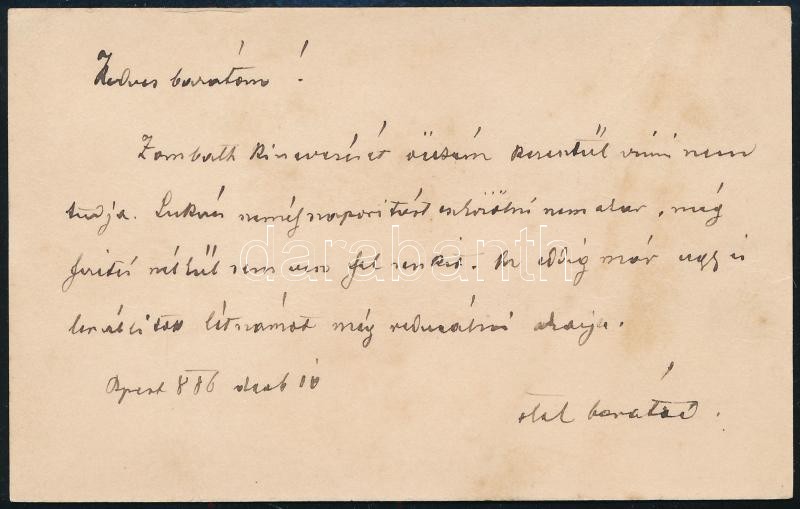 Kedves barátom!
Zombath kinevezését öcsém keresztül vinni nem
tudja. Lukács személyszaporitást eszközölni nem akar, még
fizetés nélkül sem vesz fel senkit. Az eddig már ugy is
leszállitott létszámot még reducálni akarja.
Bpest 886 decb 10
barátod.
darabanth